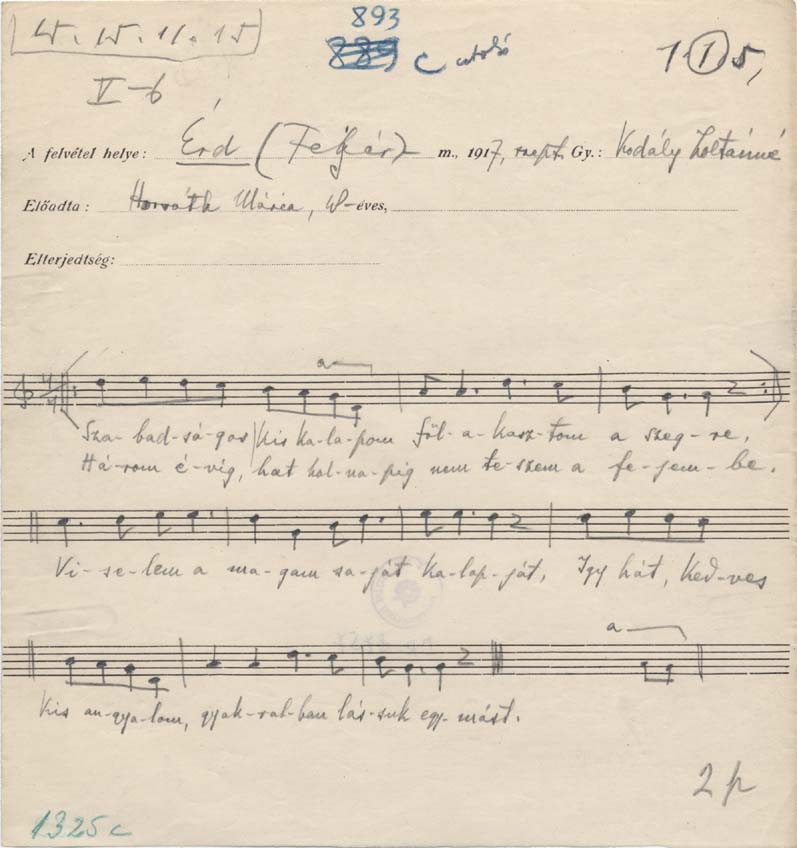 893
889 C utolsó
15. 15. 11. 15
1 (1) 5,
V–6
A felvétel helye: Érd (Fejér) m., 1917, szept. Gy.: Kodály Zoltánné
Előadta: Horváth Márea, 18-éves,
Elterjedtség:
a
Sza-bad-sá-gos kis ka-la-pom föl-a-kasz-tom a szeg-re,
Há-rom é-vig, hat hol-na-pig nem te-szem a fe-jem-be.
Vi-se-lem a ma-gam sa-ját ka-lap-ját, Igy hát, ked-ves
a
Kis an-gya-lom, gyak-rab-ban lás-suk egy-mást.
2 p
1325c